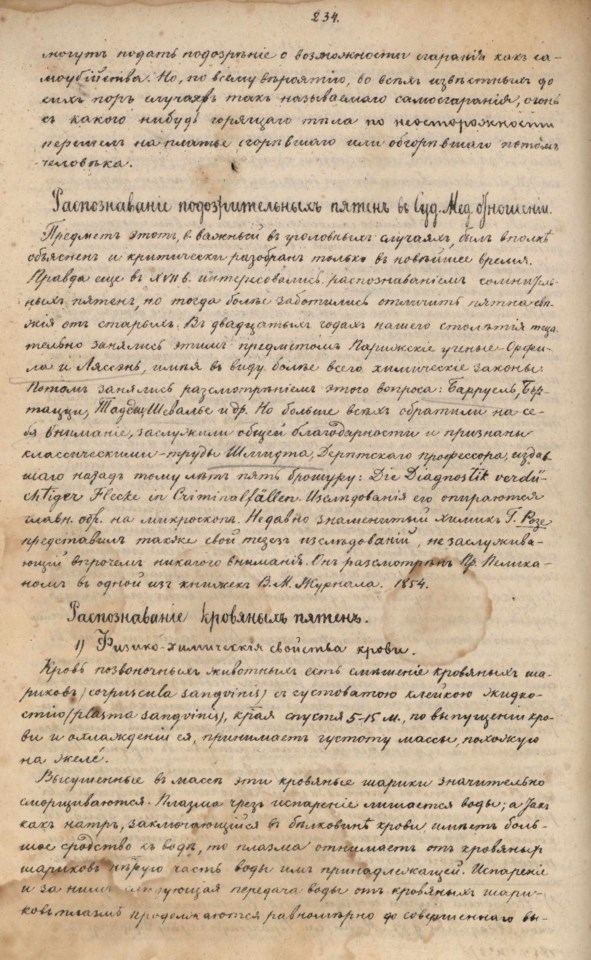 234.
могутъ подать подозрѣніе о возможности сгаранія какъ са-
моубійства. Но, по всему вѣроятію, во всѣхъ извѣстныхъ до
сихъ поръ случаяхъ такъ называемаго самосгаранія, огонь
съ какого нибудь горящаго тѣла по неосторожности
перешелъ на платье сгорѣвшаго или обгорѣвшаго потомъ
человѣка.
Распознаваніе подозрительныхъ пятенъ въ Суд. Мед. отношеніи.
Предметъ этотъ, в. важный въ уголовныхъ случаяхъ, былъ вполнѣ
объясненъ и критически разобранъ только въ новѣйшее время.
Правда еще въ XVII в. интересовались распознаваніемъ сомнитель-
ныхъ пятенъ, но тогда болѣе заботились отличить пятна свѣ-
жія отъ старыхъ. Въ двадцатыхъ годахъ нашего столѣтія тща-
тельно занялись этимъ предметомъ Парижскіе ученые Орфи-
ла и Лассэнь, имѣя въ виду болѣе всего химическіе законы.
Потомъ занялись разсмотрѣніемъ этого вопроса: Барруель, Бер-
тацци, Шевалье и др. Но больше всѣхъ обратили на се-
бя вниманіе, заслужили общей благодарности и признаны
классическими - труды Шмидта, Дерптскаго профессора, издав-
шаго назадъ тому лѣтъ пять брошуру: Die Diagnostik verdä-
chtiger Flecke in Criminalfällen. Изслѣдованія его опираются
главн. обр. на микроскопъ. Недавно знаменитый химикъ Г. Розе
представилъ также свой тезезъ изслѣдованій, не заслужива-
ющій впрочемъ никагого вниманія. Онъ разсмотрѣнъ Пр. Пелика-
номъ въ одной изъ книжекъ В. М. Журнала. 1854.
Распознаваніе кровяныхъ пятенъ.
1) Физико-химическія свойства крови.
Кровь позвоночныхъ животныхъ есть смѣшеніе кровяныхъ ша-
риковъ (corpuscula sangvinis) съ густоватою клейкою жидко-
стію (plasma sangvinis), края спустя 5-15 м., по выпущеніи кро-
ви и охлажденіи ея, принимаетъ густоту массы, похожую
на желе.
Высушенные въ массѣ эти кровяные шарики значительно
сморщиваются. Плазма чрезъ испареніе лишается воды; а такъ
какъ натръ, заключающійся въ бѣлковинѣ крови имѣетъ боль-
шое сродство къ водѣ, то плазма отнимаетъ отъ кровяныхъ
шариковъ нѣкрую часть воды имъ принадлежащей. Испареніе
и за нимъ слѣдующая передача воды отъ кровяныхъ шари-
ковъ плазмѣ продолжаются равномѣрно до совершеннаго вы-